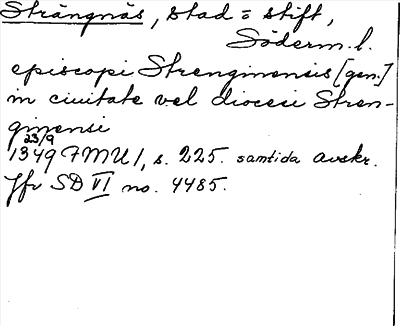 Strängnäs, stad = stift,
Söderm. l.
episcopi Strenginensis [gen.]
in ciuitate vel diocesi Stren-
ginensi
23/9
1349 FMU 1, s. 225. samtida avskr.
Jfr SD VI no. 4485.